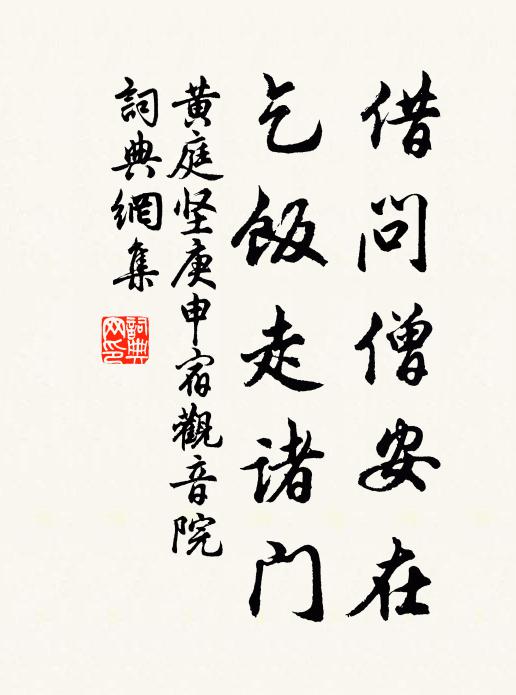 借问僧安在
乞饭走诸门
黄庭坚庚申宿觀音院
詞典網集
詞典网印